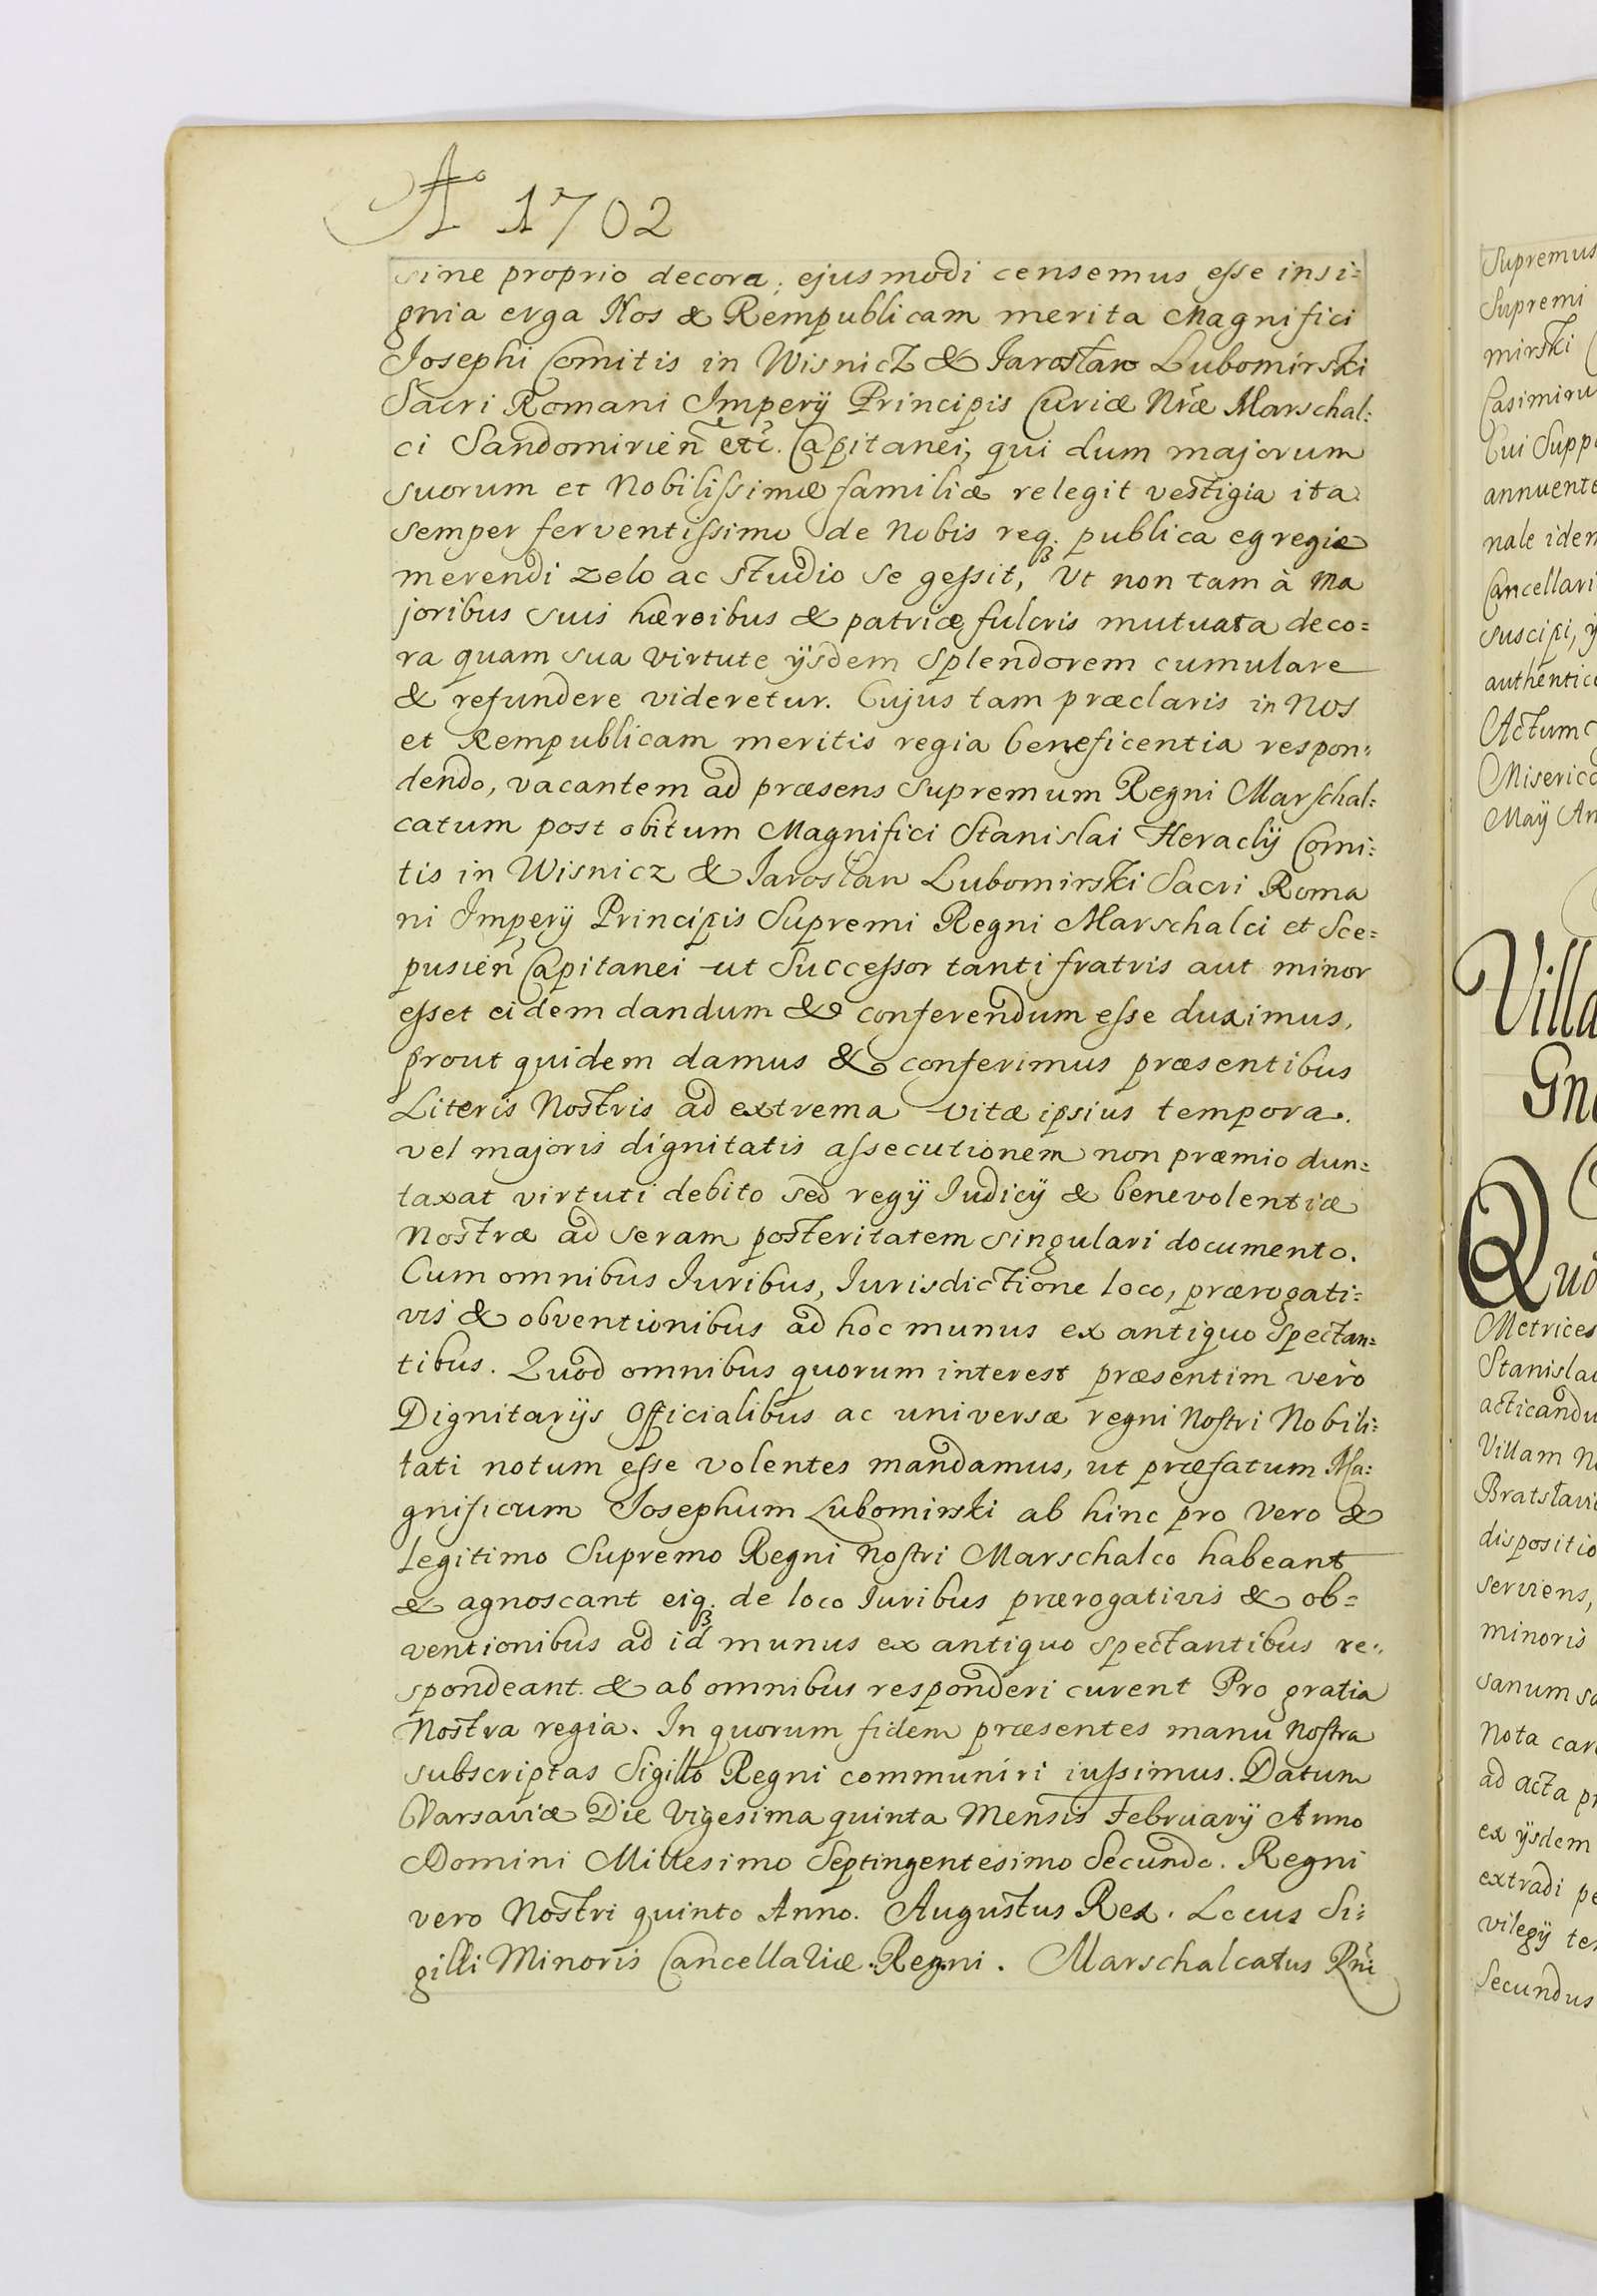 Aº 1702
sine proprio decora; ejusmodi censemus esse insi=
gnia erga Nos & Rempublicam merita Magnifici
Josephi Comitis in Wisnicz & Iaroslaw Lubomirski
Sacri Romani Imperÿ Principis Curiæ Nræ Marschal:
ci Sandomirien̄ etc. Capitanei, qui dum majorum
suorum et Nobilissimæ familiæ relegit vestigia ita
semper ferventissimo de Nobis req. publica egregie
merendi zelo ac studio se gessit, Vt non tam à Ma
joribus suis hæroibus & patriæ fulcris mutuata deco=
ra quam sua virtute ÿsdem splendorem cumulare
& refundere videretur. Cujus tam præclaris in Nos
et Rempublicam meritis regia beneficentia respon:
dendo, vacantem ad præsens supremum Regni Marschal:
catum post obitum Magnifici Stanislai Heraclÿ Comi:
tis in Wisnicz & Iaroslaw Lubomirski Sacri Roma
ni Imperÿ Principis Supremi Regni Marschalci et Sce=
pusien̄ Capitanei ut Successor tanti fratris aut minor
esset eidem dandum & conferendum esse duximus,
prout quidem damus & conferimus præsentibus
Literis Nostris ad extrema vitæ ipsius tempora.
vel majoris dignitatis assecutionem non præmio dun=
taxat virtuti debito sed regÿ Iudicÿ & benevolentiæ
Nostræ ad seram posteritatem singulari documento.
Cum omnibus Iuribus, Iurisdictione loco, prærogati=
vis & obventionibus ad hoc munus ex antiquo spectan=
tibus. Quod omnibus quorum interest præsentim verò
Dignitarÿs Officialibus ac universæ regni Nostri Nobili:
tati notum esse volentes mandamus, ut præfatum Ma:
gnificum Iosephum Lubomirski ab hinc pro vero &
legitimo Supremo Regni Nostri Marschalco habeant
& agnoscant eiq. de loco Iuribus prærogativis & ob=
ventionibus ad id munus ex antiquo spectantibus re:
spondeant. & ab omnibus responderi curent Pro gratia
Nostra regia. In quorum fidem præsentes manu Nostra
subscriptas Sigillo Regni communiri iussimus. Datum
Varsaviæ Die Vigesima quinta Mensis Februarÿ Anno
Domini Millesimo Septingentesimo Secundo. Regni
vero Nostri quinto Anno. Augustus Rex. Locus Si:
gilli Minoris Cancellariæ Regni. Marschalcatus Rni
Supremus
Supremi
mirski
Casimiru
Cui Supp
annuente
nale iden
Cancellari
suscipi, ÿ
authentic
Actum
Miserico
Maÿ An
Villa
Gn
Quo
Metrices
Stanislai
acticandu
Villam N
Bratslavi
dispositio
serviens,
minoris
sanum sa
Nota car
ad acta pr
ex ÿsdem
extradi pe
vilegÿ te
Secundus